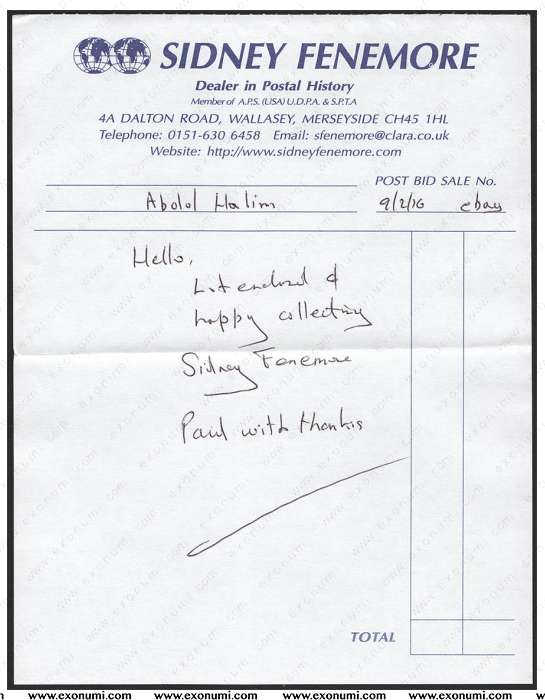 SIDNEY FENEMORE
Dealer in Postal History
Member of A.P.S. (USA) U.D.P.A. & S.P.T.A
4A DALTON ROAD, WALLASEY, MERSEYSIDE CH45 1HL
Telephone: 0151-630 6458 Email: sfenemore@clara.co.uk
Website: http://www.sidneyfenemore.com
POST BID SALE No.
Abdol Halim 9/2/10 ebay
Hello,
Lot enclosed &
happy collecting
Sidney Fenemore
Paid with thanks
TOTAL
www.exonumi.com www.exonumi.com www.exonumi.com www.exonumi.com